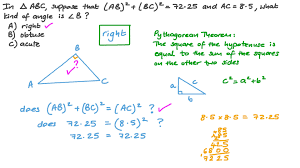 In △ ABC, suppose that (AB)² + (BC)² = 72.25 and AC = 8.5, what
kind of angle is ∠B?
A) right ✓
B) obtuse
C) acute
right
Pythagorean Theorem:
The square of the hypotenuse is
equal to the sum of the squares
on the other two sides
B
?
A
C
c
a
b
c² = a² + b²
does (AB)² + (BC)² = (AC)² ? ✓
does 72.25 = (8.5)² ?
72.25 = 72.25
8.5 × 8.5 = 72.25
85
×85
425
6800
7225